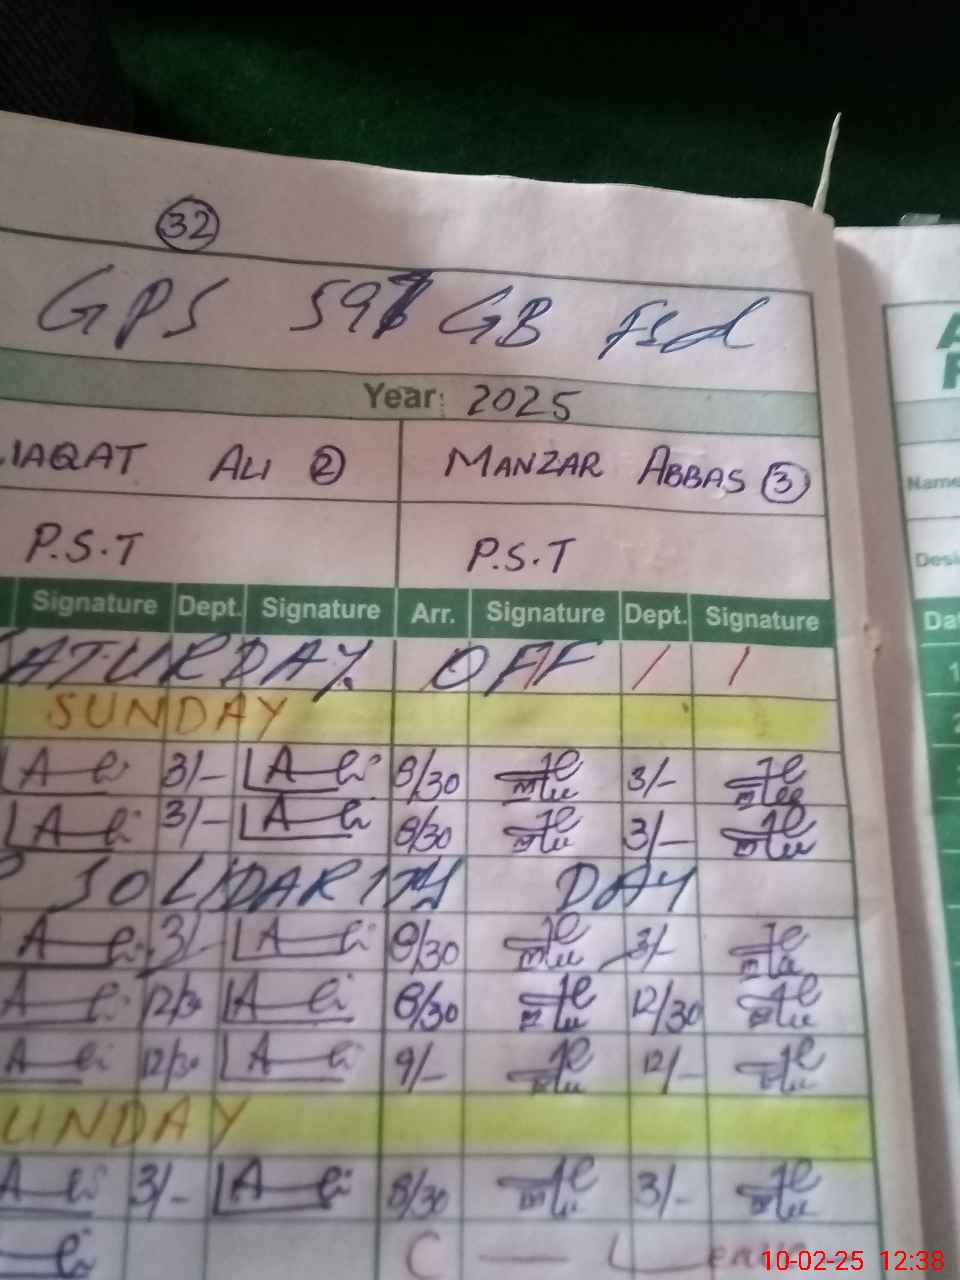 32
GPS 597 GB Fsd
Year: 2025
IAQAT ALI 2 MANZAR ABBAS 3
P.S.T P.S.T
Signature Dept. Signature Arr. Signature Dept. Signature
ATURDAY OFF / /
SUNDAY
A 3/- A 8/30 3/-
A 3/- A 8/30 3/-
SOLIDARITY DAY
A 3/- A 8/30 3/-
A 12/30 A 8/30 12/30
A 12/30 A 9/- 12/-
UNDAY
A 3/- A 8/30 3/-
C — Leave
Name
Desi
Dat
10-02-25 12:38